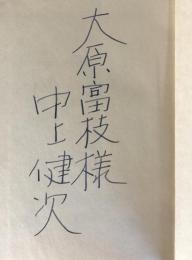 大原富枝様
中上健次